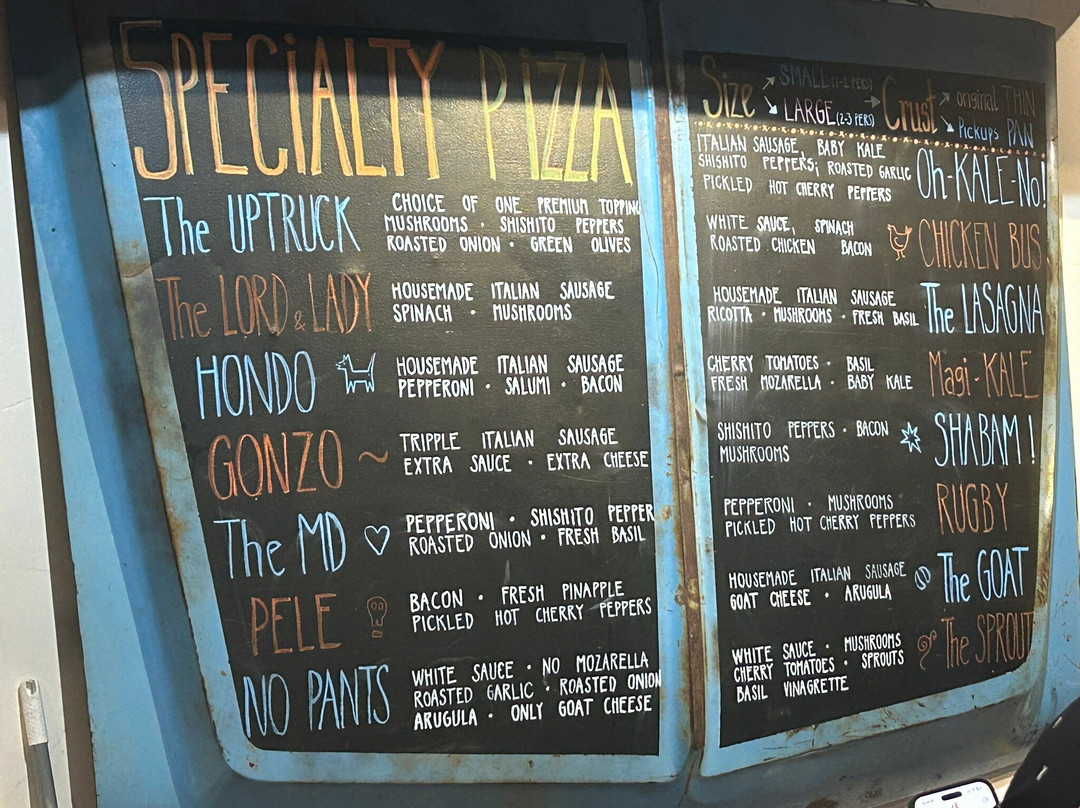 SPECIALTY PIZZA
The UPTRUCK
CHOICE OF ONE PREMIUM TOPPING
MUSHROOMS · SHISHITO PEPPERS
ROASTED ONION · GREEN OLIVES
The LORD & LADY
HOUSEMADE ITALIAN SAUSAGE
SPINACH · MUSHROOMS
HONDO
HOUSEMADE ITALIAN SAUSAGE
PEPPERONI · SALUMI · BACON
GONZO ~
TRIPPLE ITALIAN SAUSAGE
EXTRA SAUCE · EXTRA CHEESE
The MD
PEPPERONI · SHISHITO PEPPER
ROASTED ONION · FRESH BASIL
PELE
BACON · FRESH PINAPPLE
PICKLED HOT CHERRY PEPPERS
NO PANTS
WHITE SAUCE · NO MOZARELLA
ROASTED GARLIC · ROASTED ONION
ARUGULA · ONLY GOAT CHEESE
Size
SMALL (1-2 PERS)
LARGE (2-3 PERS)
Crust
original THIN
Pickups PAN
ITALIAN SAUSAGE, BABY KALE
SHISHITO PEPPERS, ROASTED GARLIC
PICKLED HOT CHERRY PEPPERS
Oh-KALE-No!
WHITE SAUCE, SPINACH
ROASTED CHICKEN BACON
CHICKEN BUS
HOUSEMADE ITALIAN SAUSAGE
RICOTTA · MUSHROOMS · FRESH BASIL
The LASAGNA
CHERRY TOMATOES · BASIL
FRESH MOZARELLA · BABY KALE
Magi-KALE
SHISHITO PEPPERS · BACON
MUSHROOMS
SHABAM!
PEPPERONI · MUSHROOMS
PICKLED HOT CHERRY PEPPERS
RUGBY
HOUSEMADE ITALIAN SAUSAGE
GOAT CHEESE · ARUGULA
The GOAT
WHITE SAUCE · MUSHROOMS
CHERRY TOMATOES · SPROUTS
BASIL VINAGRETTE
The SPROUT